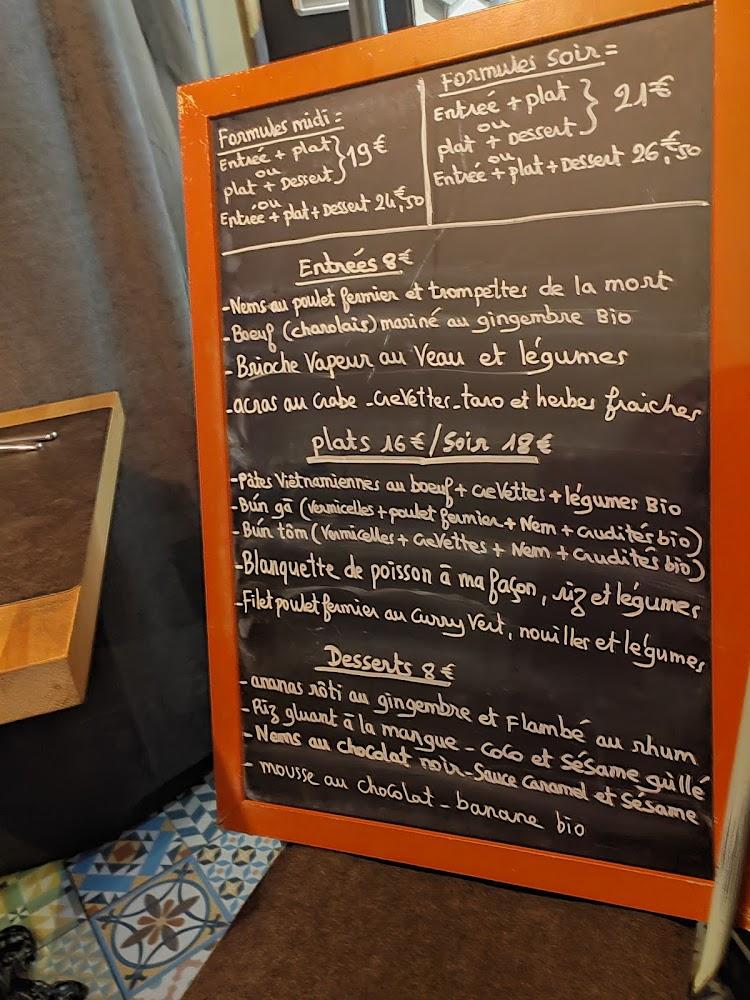 Formules midi =
Entrée + plat
ou
plat + Dessert } 19€
ou
Entrée + plat + Dessert 24,€50
Formules Soir =
Entreé + plat
ou
plat + Dessert } 21€
ou
Entrée + plat + Dessert 26,€50
Entrées 8€
- Nems au poulet fermier et trompettes de la mort
- Boeuf (charolais) mariné au gingembre Bio
- Brioche Vapeur au Veau et légumes
- acras au Crabe - CreVettes - taro et herbes fraiches
plats 16€ / Soir 18€
- Pâtes Viêtnamiennes au boeuf + creVettes + légumes Bio
- Bún gà (Vermicelles + poulet fermier + Nem + crudités bio)
- Bún tôm (Vermicelles + CreVettes + Nem + Crudités bio)
- Blanquette de poisson à ma façon, riz et légumes
- Filet poulet fermier au Curry Vert, nouilles et légumes
Desserts 8€
- ananas rôti au gingembre et Flambé au rhum
- Riz gluant à la mangue - coco et sésame grillé
- Nems au chocolat noir - Sauce Caramel et sésame
- mousse au chocolat - banane bio